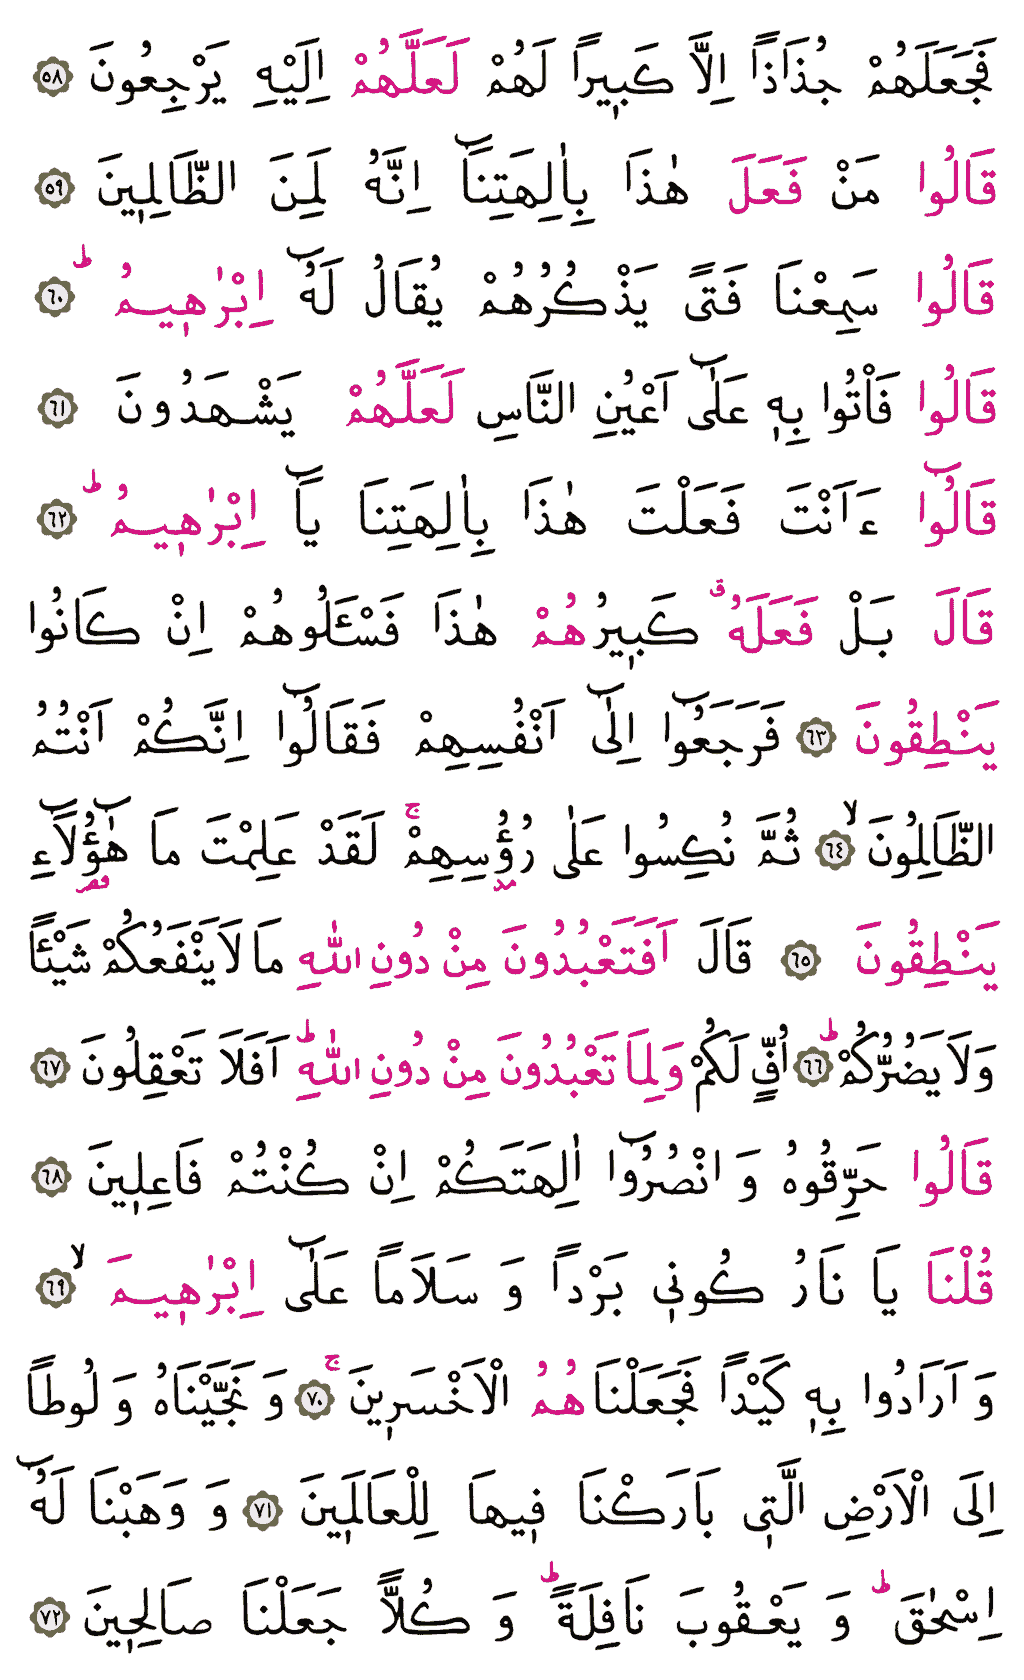 فَجَعَلَهُمْ جُذَاذًا اِلَّا كَبٖيرًا لَهُمْ لَعَلَّهُمْ اِلَيْهِ يَرْجِعُونَ ﴿٥٨﴾
قَالُوا مَنْ فَعَلَ هٰذَا بِاٰلِهَتِنَٓا اِنَّهُ لَمِنَ الظَّالِمٖينَ ﴿٥٩﴾
قَالُوا سَمِعْنَا فَتًى يَذْكُرُهُمْ يُقَالُ لَهُٓ اِبْرٰهٖيمُ ؕ ﴿٦٠﴾
قَالُوا فَاْتُوا بِهٖ عَلٰٓى اَعْيُنِ النَّاسِ لَعَلَّهُمْ يَشْهَدُونَ ﴿٦١﴾
قَالُٓوا ءَاَنْتَ فَعَلْتَ هٰذَا بِاٰلِهَتِنَا يَٓا اِبْرٰهٖيمُ ؕ ﴿٦٢﴾
قَالَ بَلْ فَعَلَهُ ۗ كَبٖيرُهُمْ هٰذَا فَسْـَٔلُوهُمْ اِنْ كَانُوا
يَنْطِقُونَ ﴿٦٣﴾ فَرَجَعُٓوا اِلٰٓى اَنْفُسِهِمْ فَقَالُٓوا اِنَّكُمْ اَنْتُمُ
الظَّالِمُونَ ۙ ﴿٦٤﴾ ثُمَّ نُكِسُوا عَلٰى رُؤُسِهِمْ ۚ لَقَدْ عَلِمْتَ مَا هٰٓؤُلَٓاءِ
يَنْطِقُونَ ﴿٦٥﴾ قَالَ اَفَتَعْبُدُونَ مِنْ دُونِ اللّٰهِ مَا لَا يَنْفَعُكُمْ شَيْـًٔا
وَلَا يَضُرُّكُمْ ؕ ﴿٦٦﴾ اُفٍّ لَكُمْ وَلِمَا تَعْبُدُونَ مِنْ دُونِ اللّٰهِ ؕ اَفَلَا تَعْقِلُونَ ﴿٦٧﴾
قَالُوا حَرِّقُوهُ وَ انْصُرُٓوا اٰلِهَتَكُمْ اِنْ كُنْتُمْ فَاعِلٖينَ ﴿٦٨﴾
قُلْنَا يَا نَارُ كُونٖى بَرْدًا وَ سَلَامًا عَلٰٓى اِبْرٰهٖيمَ ۙ ﴿٦٩﴾
وَ اَرَادُوا بِهٖ كَيْدًا فَجَعَلْنَاهُمُ الْاَخْسَرٖينَ ۚ ﴿٧٠﴾ وَ نَجَّيْنَاهُ وَ لُوطًا
اِلَى الْاَرْضِ الَّتٖى بَارَكْنَا فٖيهَا لِلْعَالَمٖينَ ﴿٧١﴾ وَ وَهَبْنَا لَهُٓ
اِسْحٰقَ ؕ وَ يَعْقُوبَ نَافِلَةً ؕ وَ كُلًّا جَعَلْنَا صَالِحٖينَ ﴿٧٢﴾